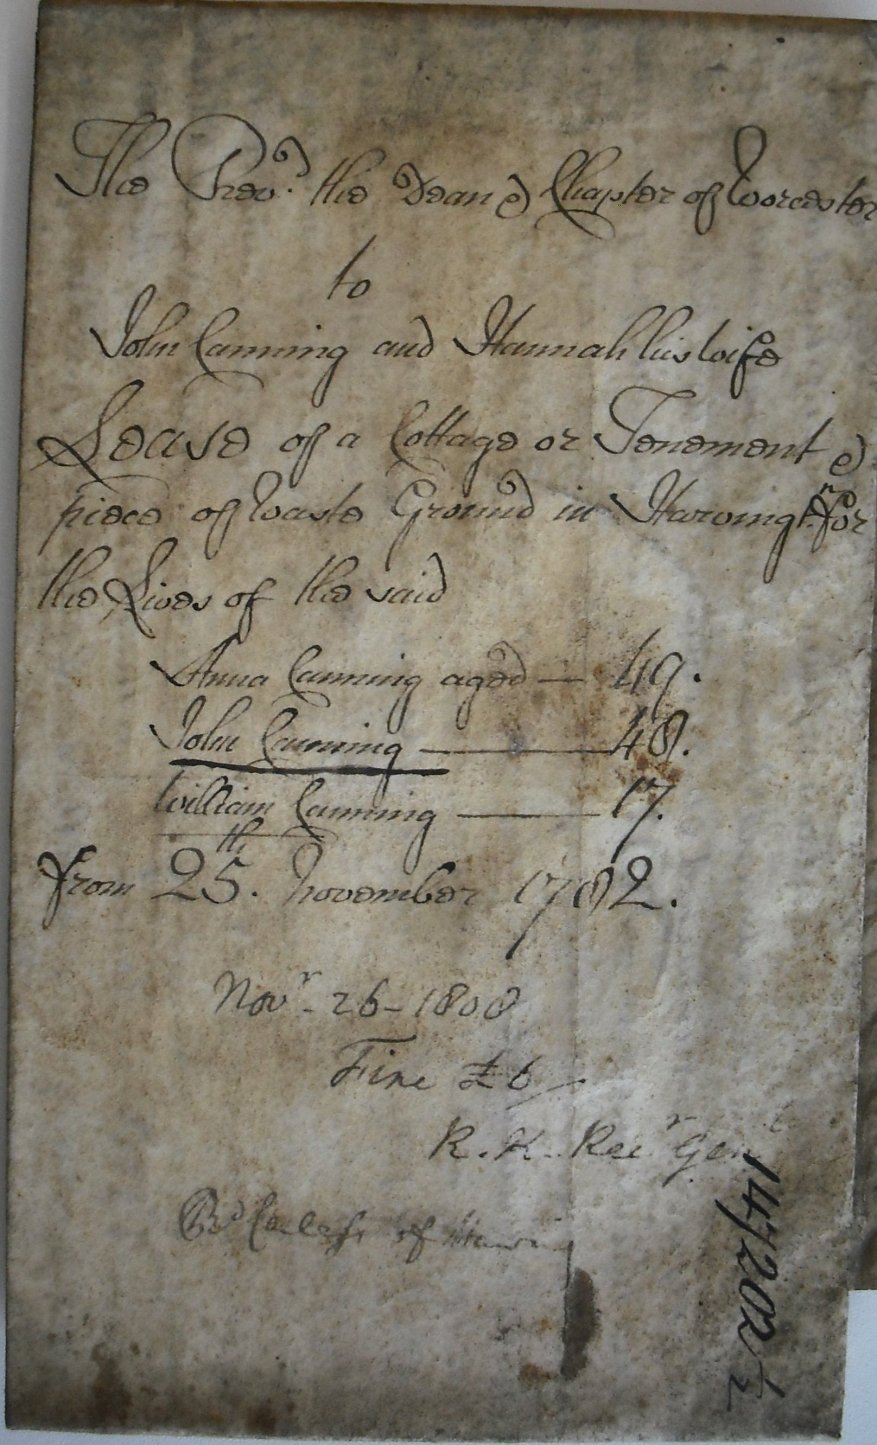 The Rev.d the Dean & Chapter of Worcester
to
John Canning and Hannah his wife
Lease of a Cottage or Tenement &
piece of Waste Ground in Harvingt.n for
the Lives of the said
Anna Canning aged — 49.
John Canning — 48.
William Canning — 17.
from 25.th November 1782.
Nov.r 26 - 1808
Fine £6
R. K. Rec.r Gen
of
147202½